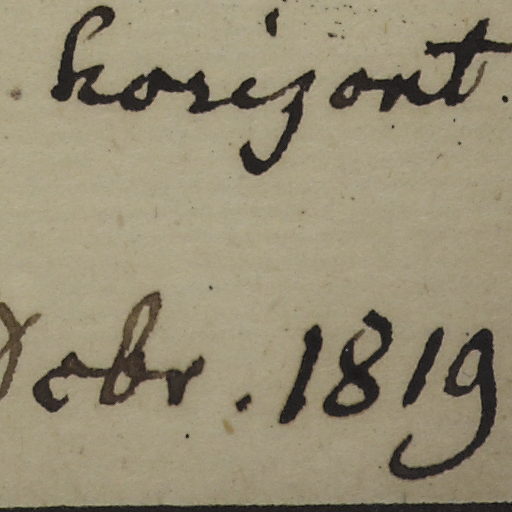 horizont.
Debr. 1819